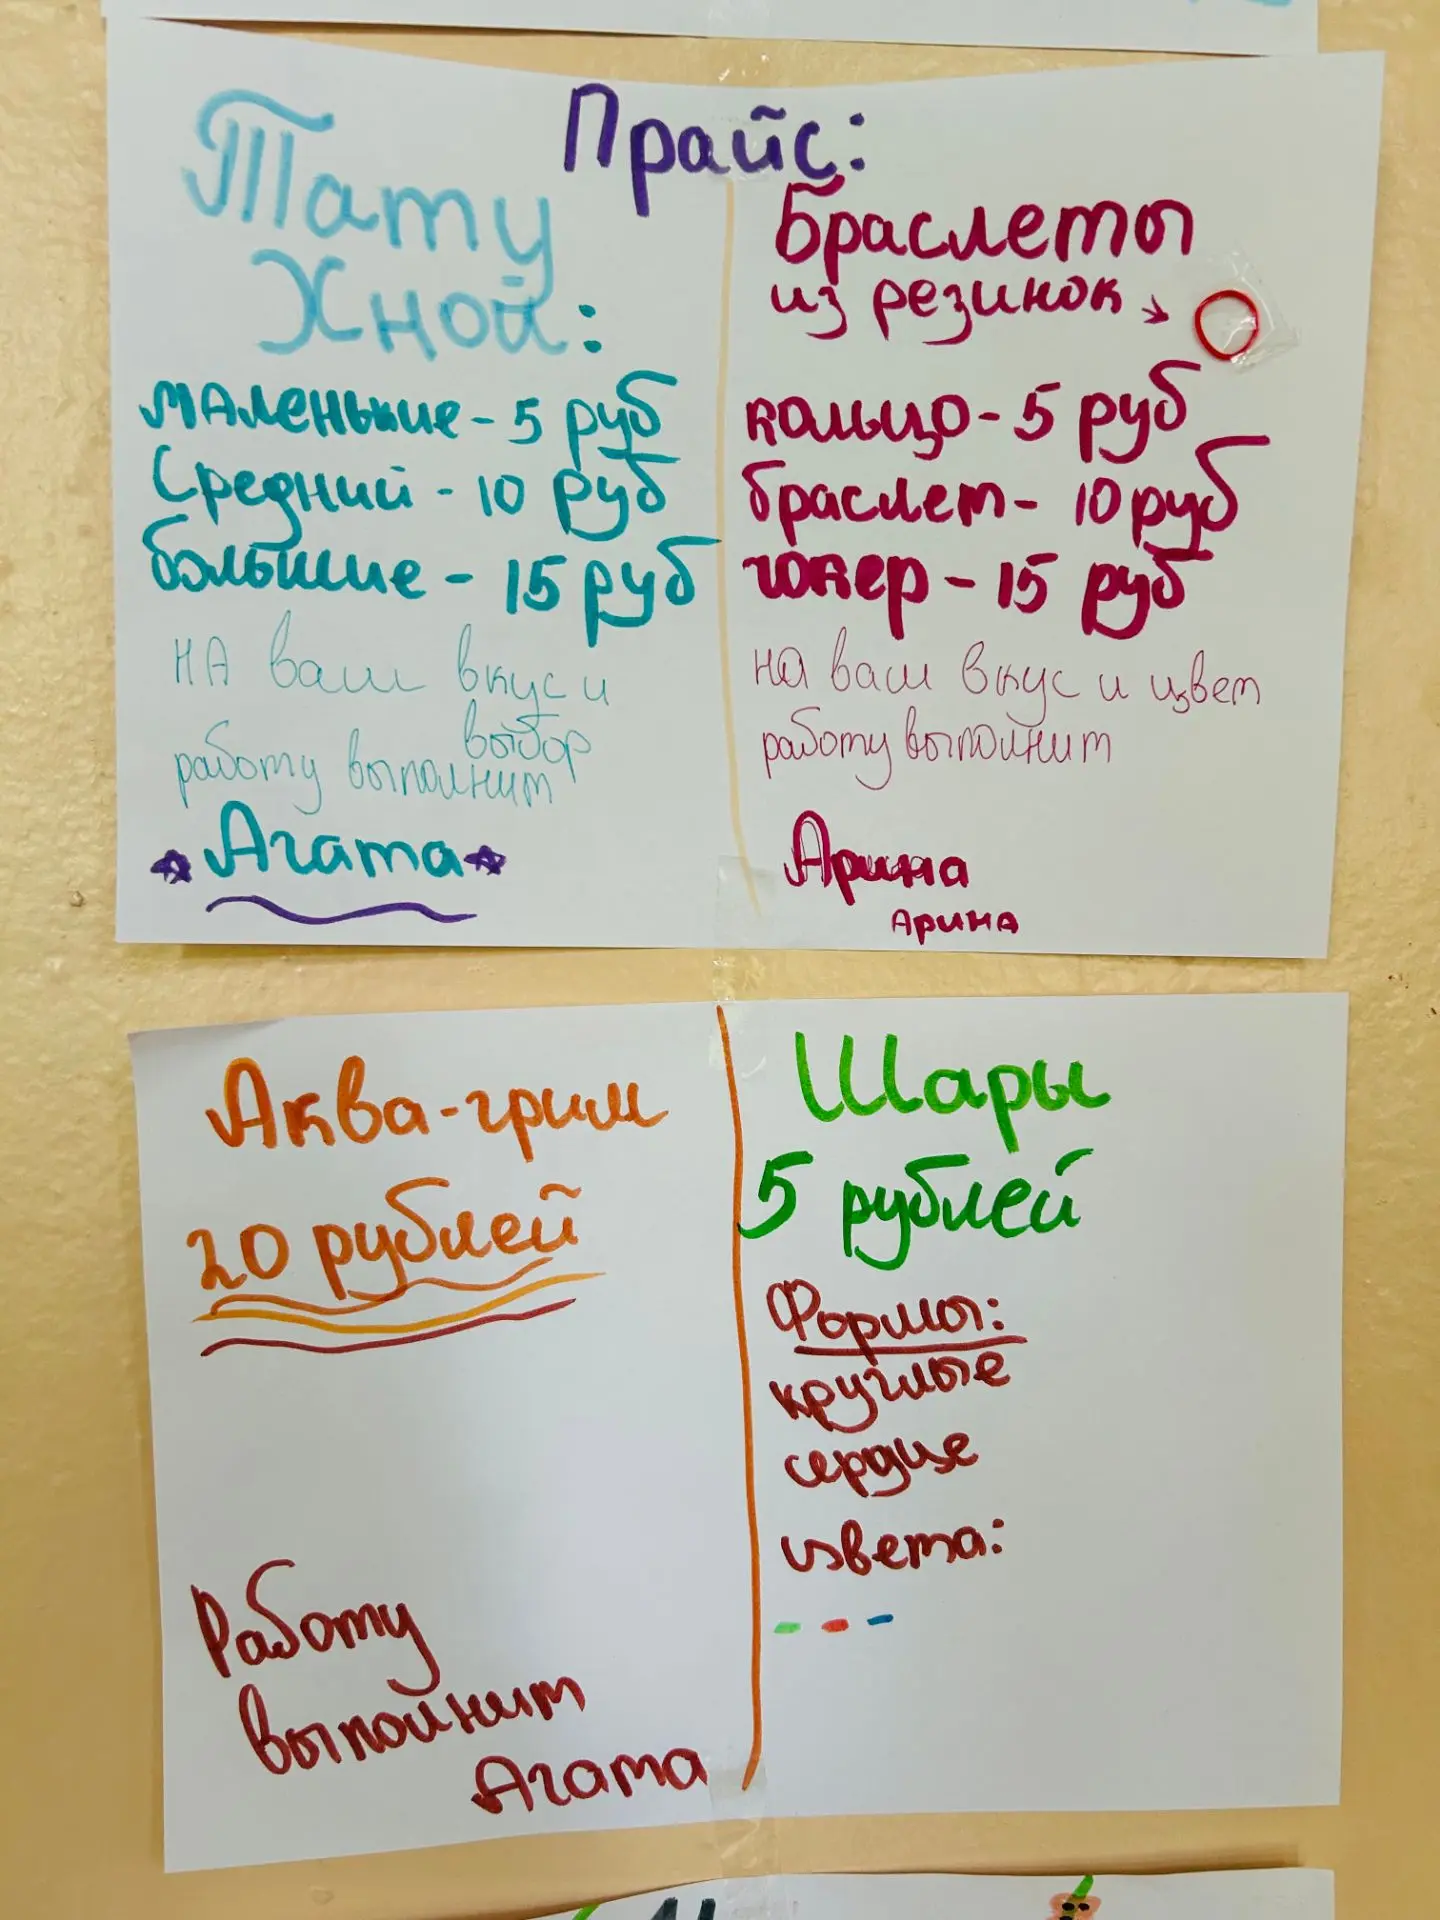 Прайс:
Тату
Хной:
маленькие - 5 руб
Средний - 10 руб
большие - 15 руб
на ваш вкус и
выбор
работу выполнит
Агата
Браслеты
из резинок →
кольцо - 5 руб
браслет - 10 руб
чокер - 15 руб
на ваш вкус и цвет
работу выполнит
Арина
Арина
Аква-грим
20 рублей
Работу
выполнит
Агата
Шары
5 рублей
Формы:
круглые
сердце
цвета: